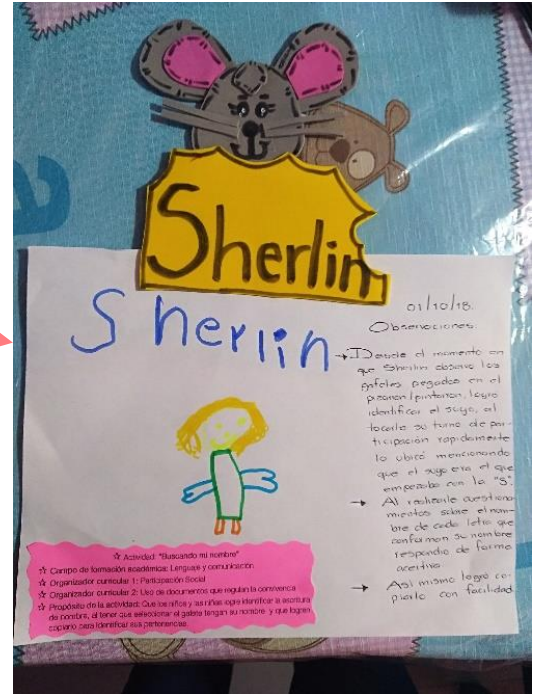 Sherlin
Sherlin
01/10/18.
Observaciones.
→ Desde el momento en
que Sherlin observo los
gafetes pegados en el
pizarron/pintarron, logro
identificar el suyo, al
tocarle su turno de par-
ticipación rapidamente
lo ubicó mencionando
que el suyo era el que
empezaba con la "S".
→ Al realizarle cuestiona-
mientos sobre el nom-
bre de cada letra que
conforman su nombre
respondio de forma
acertiva.
→ Asi mismo logró co-
piarlo con facilidad.
☆ Actividad: "Buscando mi nombre"
☆ Campo de formación académica: Lenguaje y comunicación
☆ Organizador curricular 1: Participación Social
☆ Organizador curricular 2: Uso de documentos que regulan la convivencia
☆ Propósito de la actividad: Que los niños y las niñas logre identificar la escritura
de nombre, al tener que seleccionar el gafete tengan su nombre y que logren
copiarlo para identificar sus pertenencias.